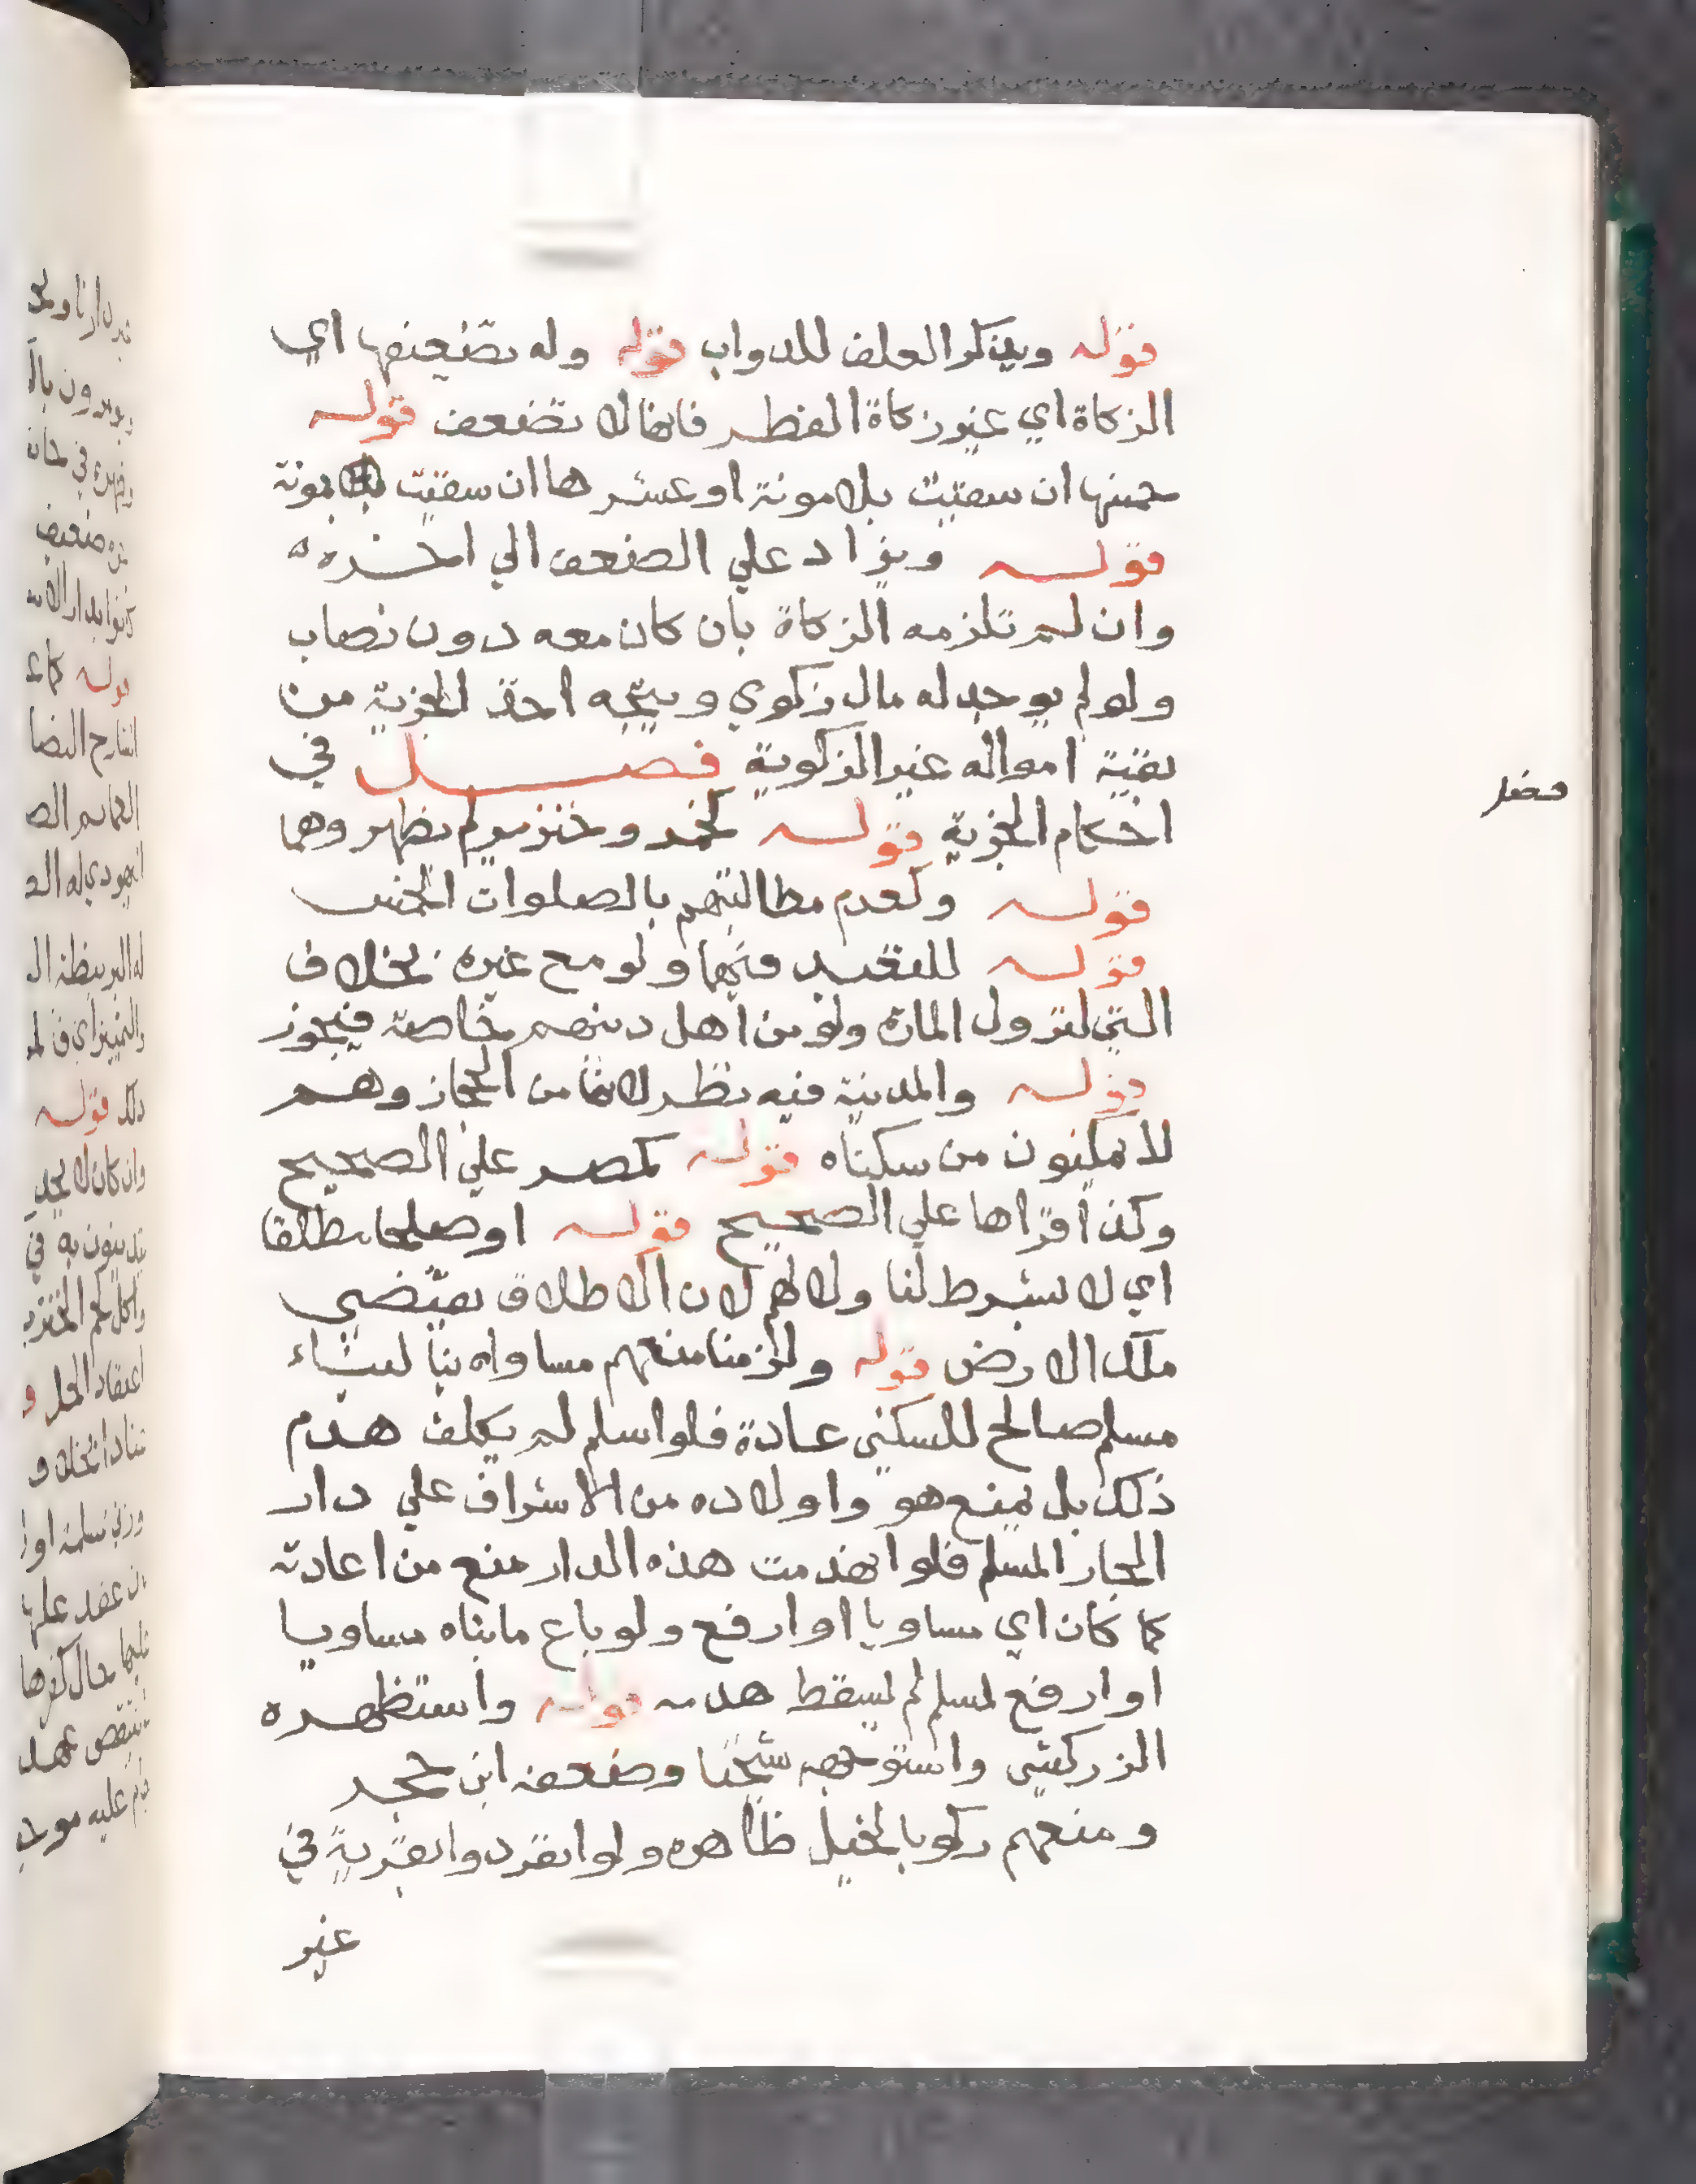 قوله ويذكر العلف للدواب قوله وله تضعيفها اي
الزكاة اي غير زكاة الفطر فانها لا تضعف قوله
خمسها ان سقيت بلا مونة او عشرها ان سقيت بمونة
قوله ويزاد علي الضعف الي اخره
وان لم تلزمه الزكاة بان كان معه دون نصاب
ولو لم يوجد له مال زكوي ويتجه اخذ الجزية من
بقية امواله غير الزكوية فصل في
احكام الجزية قوله كخمر وخنزير لم يظهروهما
قوله ولعدم مطالبتهم بالصلوات الخمس
قوله للتعبد فيها ولو مع غيره بخلاف
التي لنزول المارة ولو من اهل دينهم خاصة فيجوز
قوله والمدينة فيه نظر لانها من الحجاز وهم
لا يمكنون من سكناه قوله كمصر علي الصحيح
وكذا قراها علي الصحيح قوله او صلحا مطلقا
اي لا بشرط لنا ولا لهم لان الاطلاق يقتضي
ملك الارض قوله ولزمنا منعهم مساواة بنا لبناء
مسلم صالح للسكني عادة فلو اسلم لم يكلف هدم
ذلك بل يمنع هو واولاده من الاشراف علي دار
الجار المسلم فلو انهدمت هذه الدار منع من اعادته
كما كان اي مساويا او ارفع ولو باع ما بناه مساويا
او ارفع لمسلم لم يسقط هدمه قوله واستظهره
الزركشي واستوجهه شيخنا وضعفه ابن حجر
ومنعهم ركوبا لخيل ظاهره ولو انفردوا بقرية في
غير
فصل